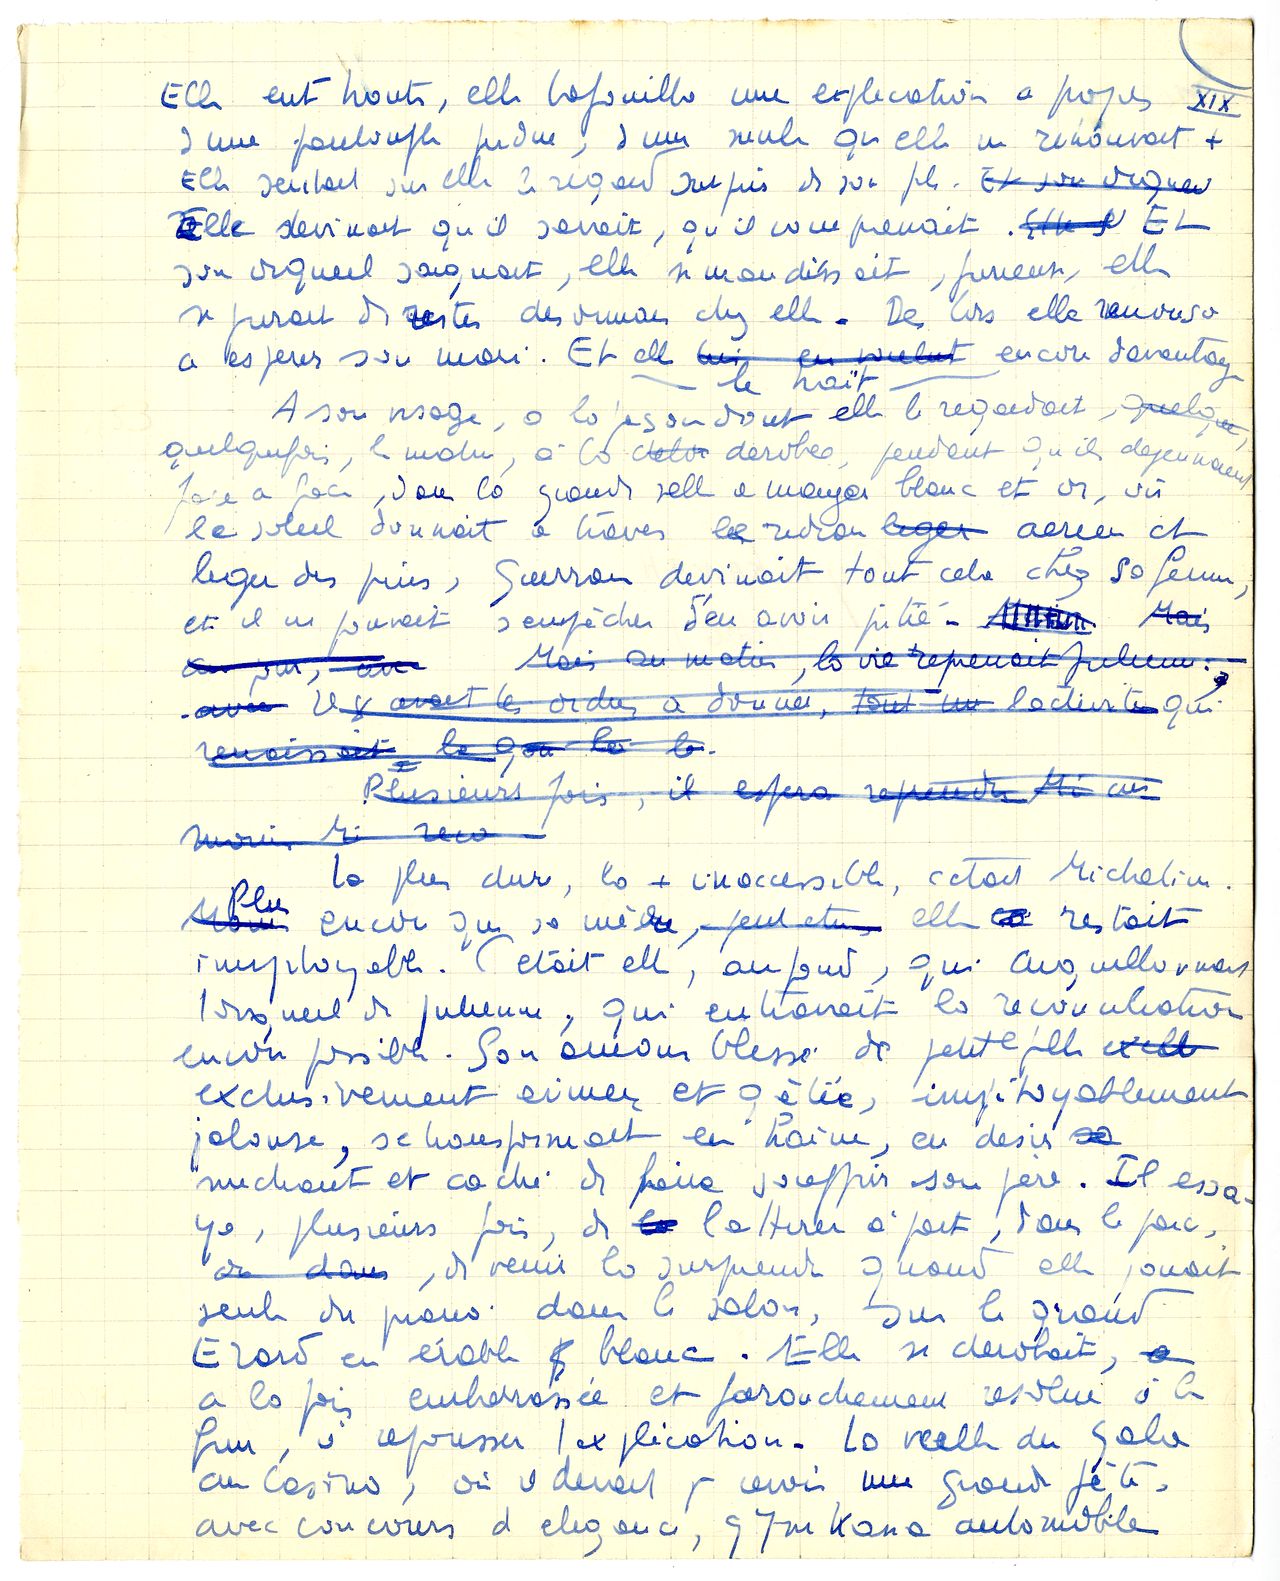 Elle eut honte, elle bafouilla une explication a propos XIX
d'une pantoufle perdue, d'une seule qu'elle ne retrouvait +
Elle sentait sur elle le regard surpris de son fils. Et son orgueil
Elle devinait qu'il savait, qu'il comprenait. Elle s Et
son orgueil saignait, elle se maudissait, furieuse, elle
se jurait de rester desormais chez elle. Des lors elle renonça
a esperer son mari. Et elle lui en voulut encore davantage
le haït
A son visage, a la façon dont elle le regardait, quelque,
quelquefois, le matin, à la dero derobée, pendant qu'ils dejeunaient
face a face, dans la grande salle a manger blanc et or, où
le soleil donnait a travers le rideau leger aerien et
leger des pins, Guerran devinait tout cela chez sa femme,
et il ne pouvait s'empêcher d'en avoir pitié. Mais
au jour, une Mais au matin, la vie reprenait Julienne :
avec Il y avait les ordres a donner, tout un l'activité qui
renaissait, le la
Plusieurs fois, il espera reprendre Mi
Mi
La plus dure, la + inaccessible, c'etait Micheline.
Plus
Mais encore que sa mère, peut etre, elle restait
impitoyable. C'etait elle, au fond, qui aiguillonnait
l'orgueil de Julienne, qui entravait la reconciliation
encore possible. Son amour blessé de petite fille excl
exclusivement aimee et gâtée, impitoyablement
jalouse, se transformait en haine, en desir
mechant et caché de faire souffrir son père. Il essa-
ya, plusieurs fois, de la l'attirer à part, dans le parc,
ou dans, de venir la surprendre quand elle jouait
seule du piano dans le salon, sur le grand
Erard en érable blanc. Elle se derobait, a
a la fois embarrassée et farouchement resolue à le
fuir, à repousser l'explication. La veille du Gala
au Casino, où il devait y avoir une grande fête,
avec concours d'elegance, gymkana automobile